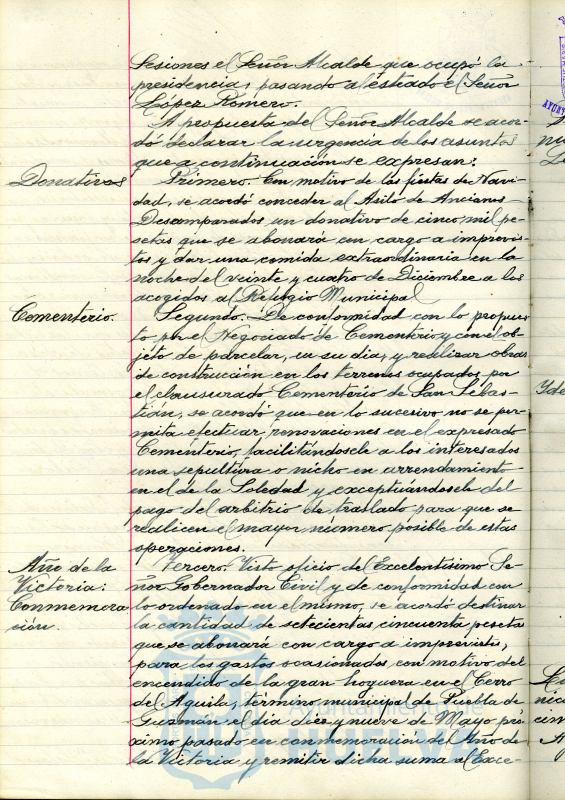 Sesiones el Señor Alcalde que ocupó la
presidencia, pasando al estrado el Señor
López Romero.
A propuesta del Señor Alcalde se acor-
dó declarar la urgencia de los asuntos
que a continuación se expresan:
Donativos
Primero. Con motivo de las fiestas de Navi-
dad, se acordó conceder al Asilo de Ancianos
Desamparados un donativo de cinco mil pe-
setas que se abonará con cargo a imprevis-
tos y dar una comida extraordinaria en la
noche del veinte y cuatro de Diciembre a los
acogidos al Refugio Municipal
Cementerio.
Segundo. De conformidad con lo propues-
to por el Negociado de Cementerio y con el ob-
jeto de parcelar, en su día, y realizar obras
de construcción en los terrenos ocupados por
el clausurado Cementerio de San Sebas-
tián, se acordó que en lo sucesivo no se per-
mita efectuar renovaciones en el expresado
Cementerio, facilitándosele a los interesados
una sepultura o nicho en arrendamiento
en el de la Soledad y exceptuándosele del
pago del arbitrio de traslado para que se
realicen el mayor número posible de estas
operaciones.
Año de la
Victoria:
Conmemora
ción.
Tercero. Visto oficio del Excelentísimo Se-
ñor Gobernador Civil y de conformidad con
lo ordenado en el mismo, se acordó destinar
la cantidad de setecientas cincuenta pesetas
que se abonará con cargo a imprevistos,
para los gastos ocasionados con motivo del
encendido de la gran hoguera en el Cerro
del Aguila, término municipal de Puebla de
Guzmán el día diez y nueve de Mayo pró-
ximo pasado en conmemoración del Año de
la Victoria y remitir dicha suma al Exce-
Ayuntamiento de
HUELVA